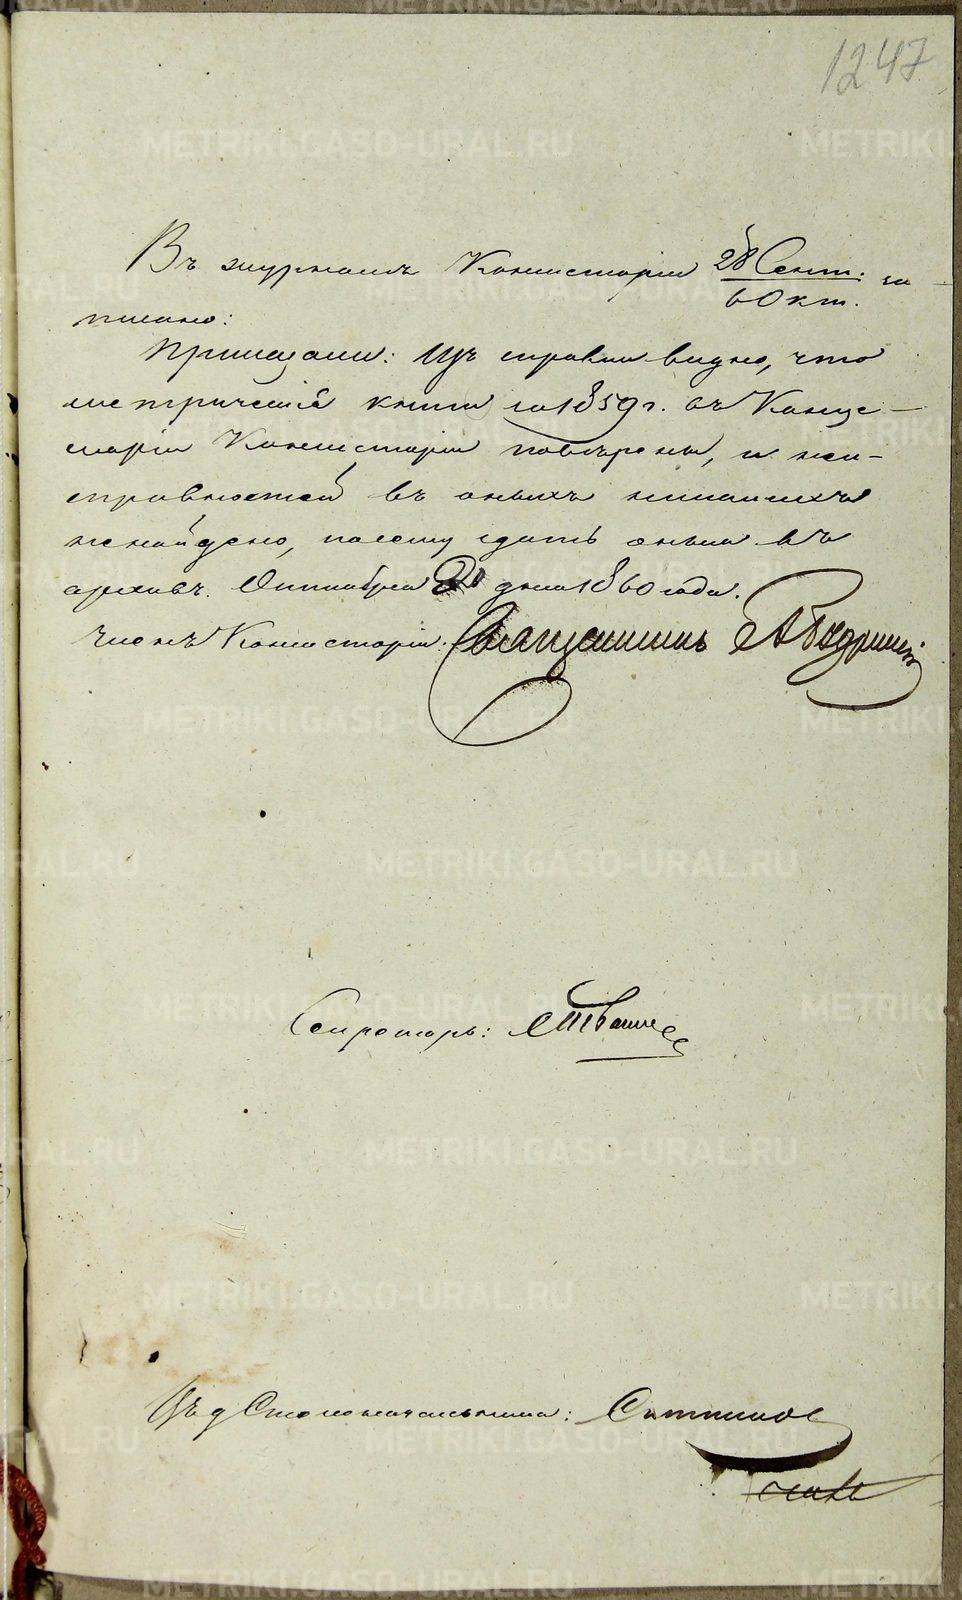 1247
Въ журналѣ Консисторіи 28 Сент. / 6 Окт. за-
писано:
Приказали: Изъ справки видно, что
метрическія книги за 1859 г. въ Канце-
ляріи Консисторіи повѣрены, и неи-
справностей въ оныхъ никакихъ
ненайдено, посему сдать оныя въ
архивъ. Октября 20 дня 1860 года.
Членъ Консисторіи: Священникъ
Секретарь:
Столоначальника:
METRIKI.GASO-URAL.RU